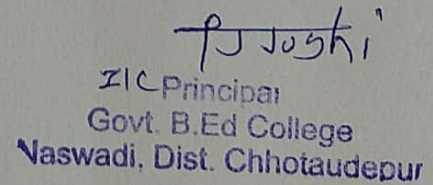 PJ Joshi
I/C Principal
Govt. B.Ed College
Naswadi, Dist. Chhotaudepur